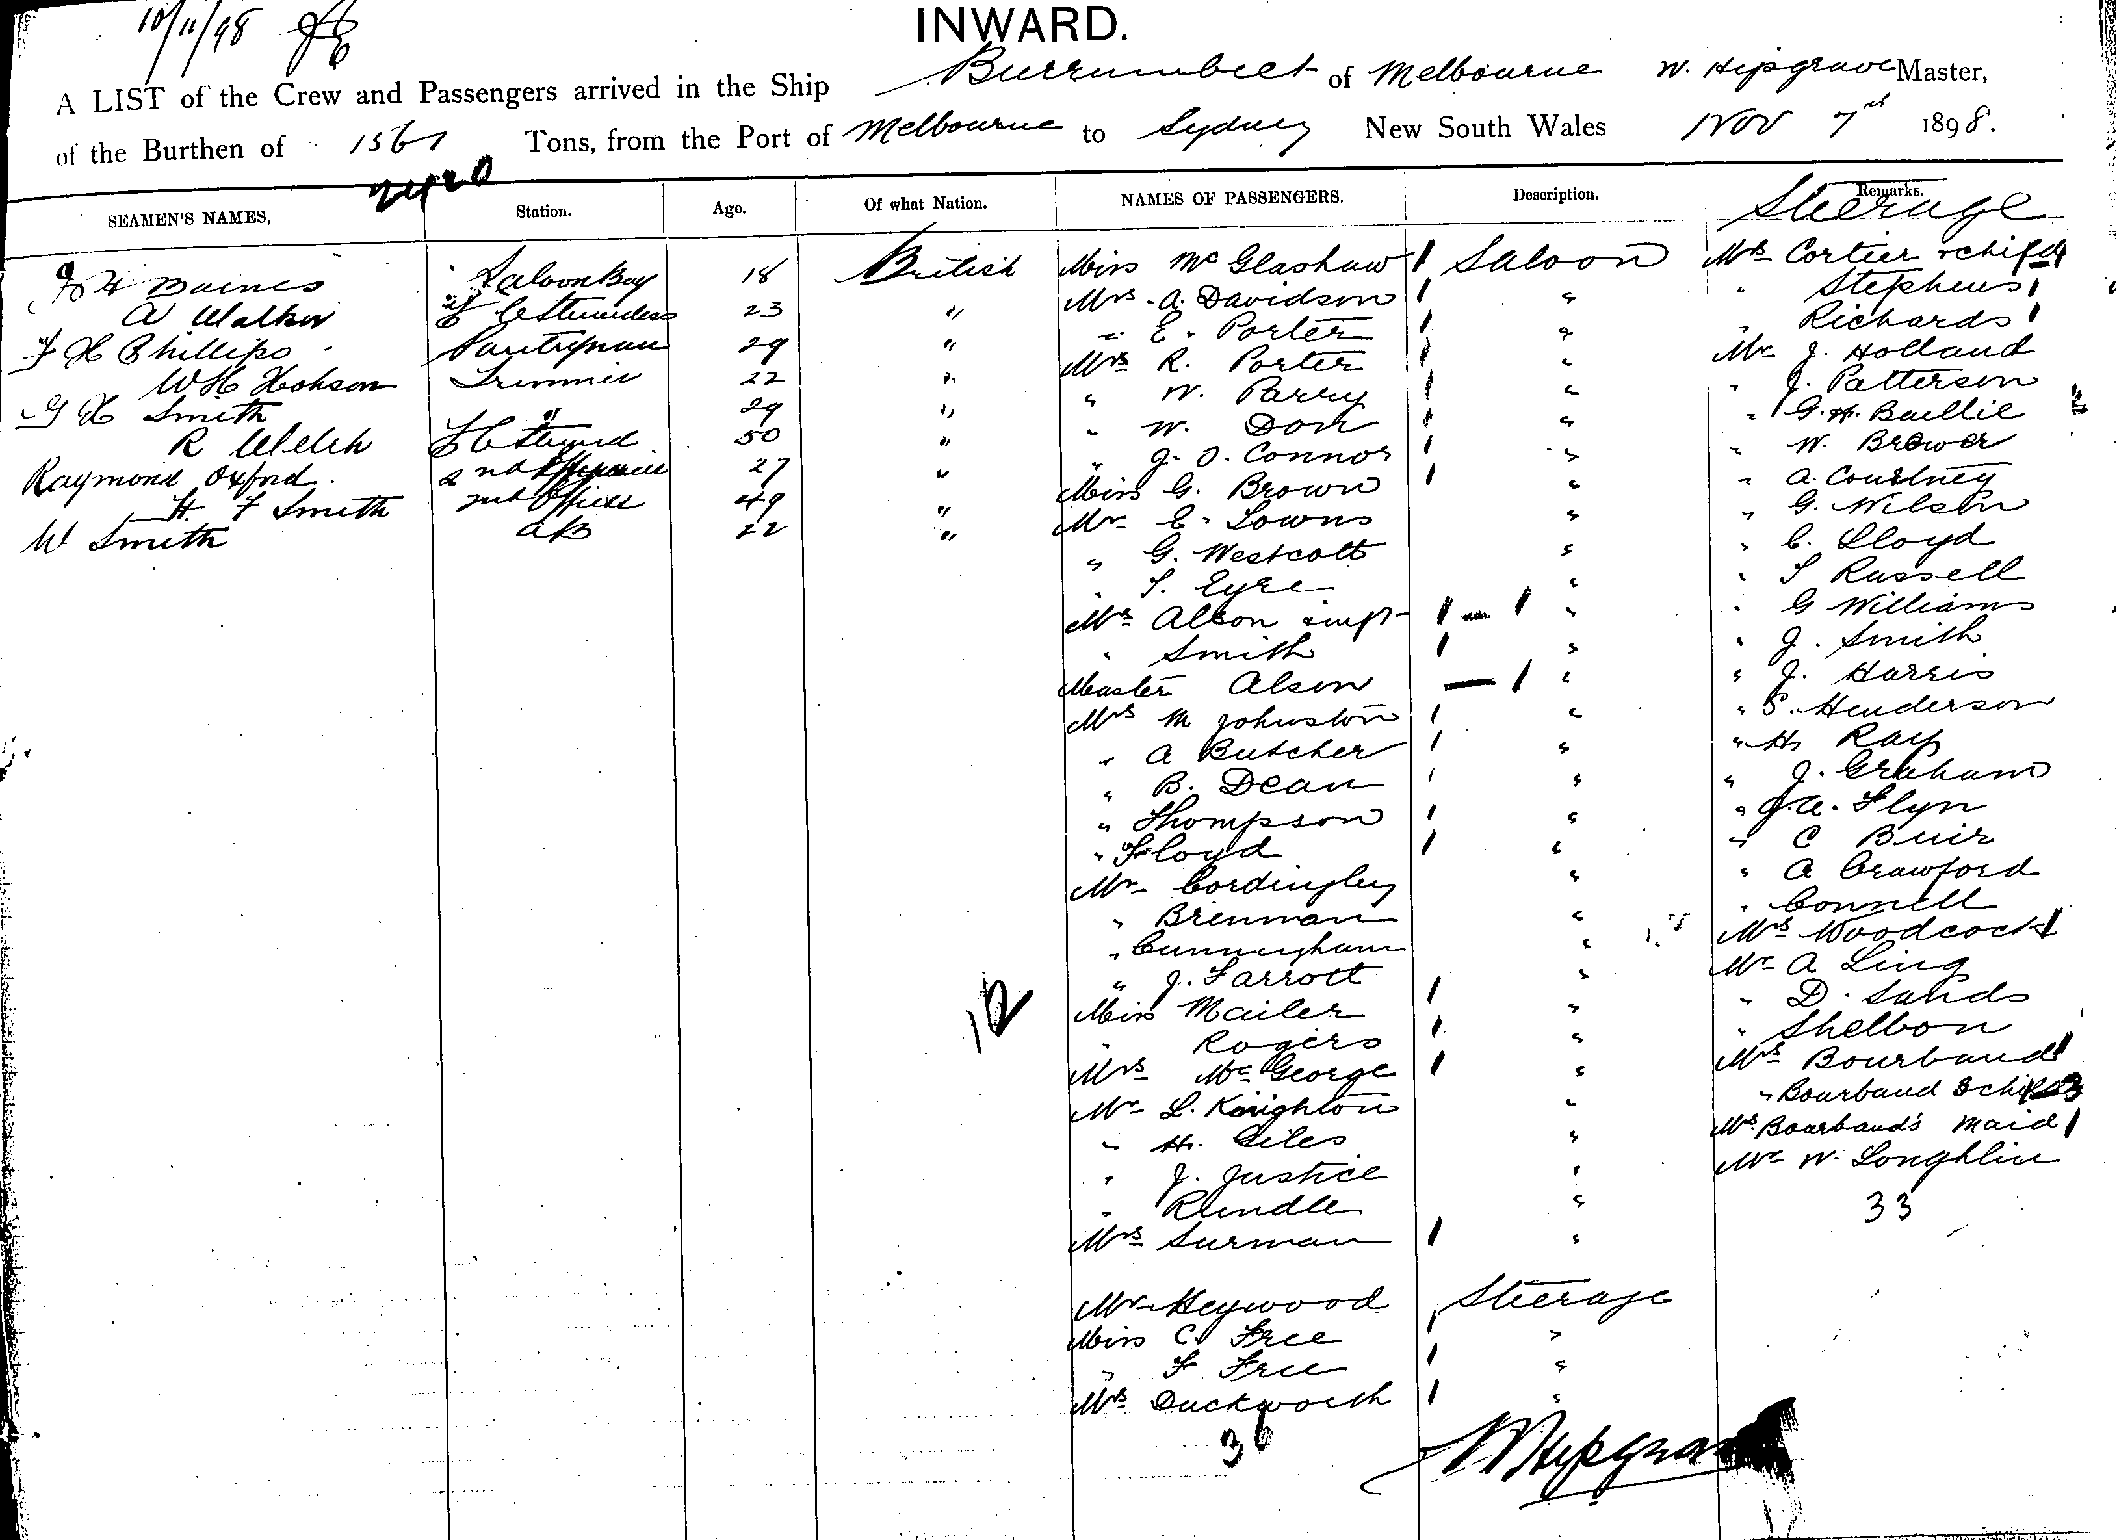 10/11/98
INWARD.
A LIST of the Crew and Passengers arrived in the Ship Burrumbeet of Melbourne W. Hipgrave Master,
of the Burthen of Tons, from the Port of Melbourne to Sydney New South Wales Nov 7 1898.
2420
SEAMEN'S NAMES, Station. Age. Of what Nation. NAMES OF PASSENGERS. Description. Remarks.
Steerage
Baines Saloon Boy 18 British Miss Mc Glashaw 1 Saloon Mrs Cortier & child
A Walker 23 " Mrs A. Davidson 1 " " Stephens 1
F H Phillips Pantryman 29 " " E. Porter 1 " " Richards 1
W H Hobson Trimmer 22 " Mrs R. Porter 1 " Mr J. Holland
G H Smith 29 " " W. Parry 1 " " J. Patterson
R Welch 50 " " W. Don 1 " " G. H. Baillie
Raymond Oxford 27 " " J. O. Connor 1 " " W. Brewer
H F Smith 2nd Officer 49 " Miss G. Brown 1 " " A. Courtney
W Smith AB 22 " Mr E. Lowns " " G. Wilson
" G. Westcott " " C. Lloyd
" T. Eyre " " S Russell
Mrs Alson inft 1 - 1 " " G Williams
" Smith 1 " " J. Smith
Master Alson - 1 " " J. Harris
Mrs M Johnston 1 " " S. Henderson
" A Butcher 1 " " H Ray
" B. Dean 1 " " J. Graham
" Thompson 1 " " J. A. Flyn
" Floyd 1 " " C Buir
Mr Cordingley " " A Crawford
" Brennan " " Connell
" Cunningham " Mrs Woodcock 1
" J. Farrott " Mr A Ling
12 Miss Mailer 1 " " D. Sands
" Rogers 1 " " Shelbon
Mrs Mc George 1 " Mrs Bourbaud 1
Mr L. Knighton " " Bourbaud 3 child 3
" H. Giles " Mrs Bourbaud's maid 1
" J. Justice " Mr W. Loughlin
" Rundle " 33
Mrs Surman 1 "
Mr Heywood Steerage
Miss C. Free 1 "
" F Free 1 "
Mrs Duckworth 1 "
36
W Hipgrave